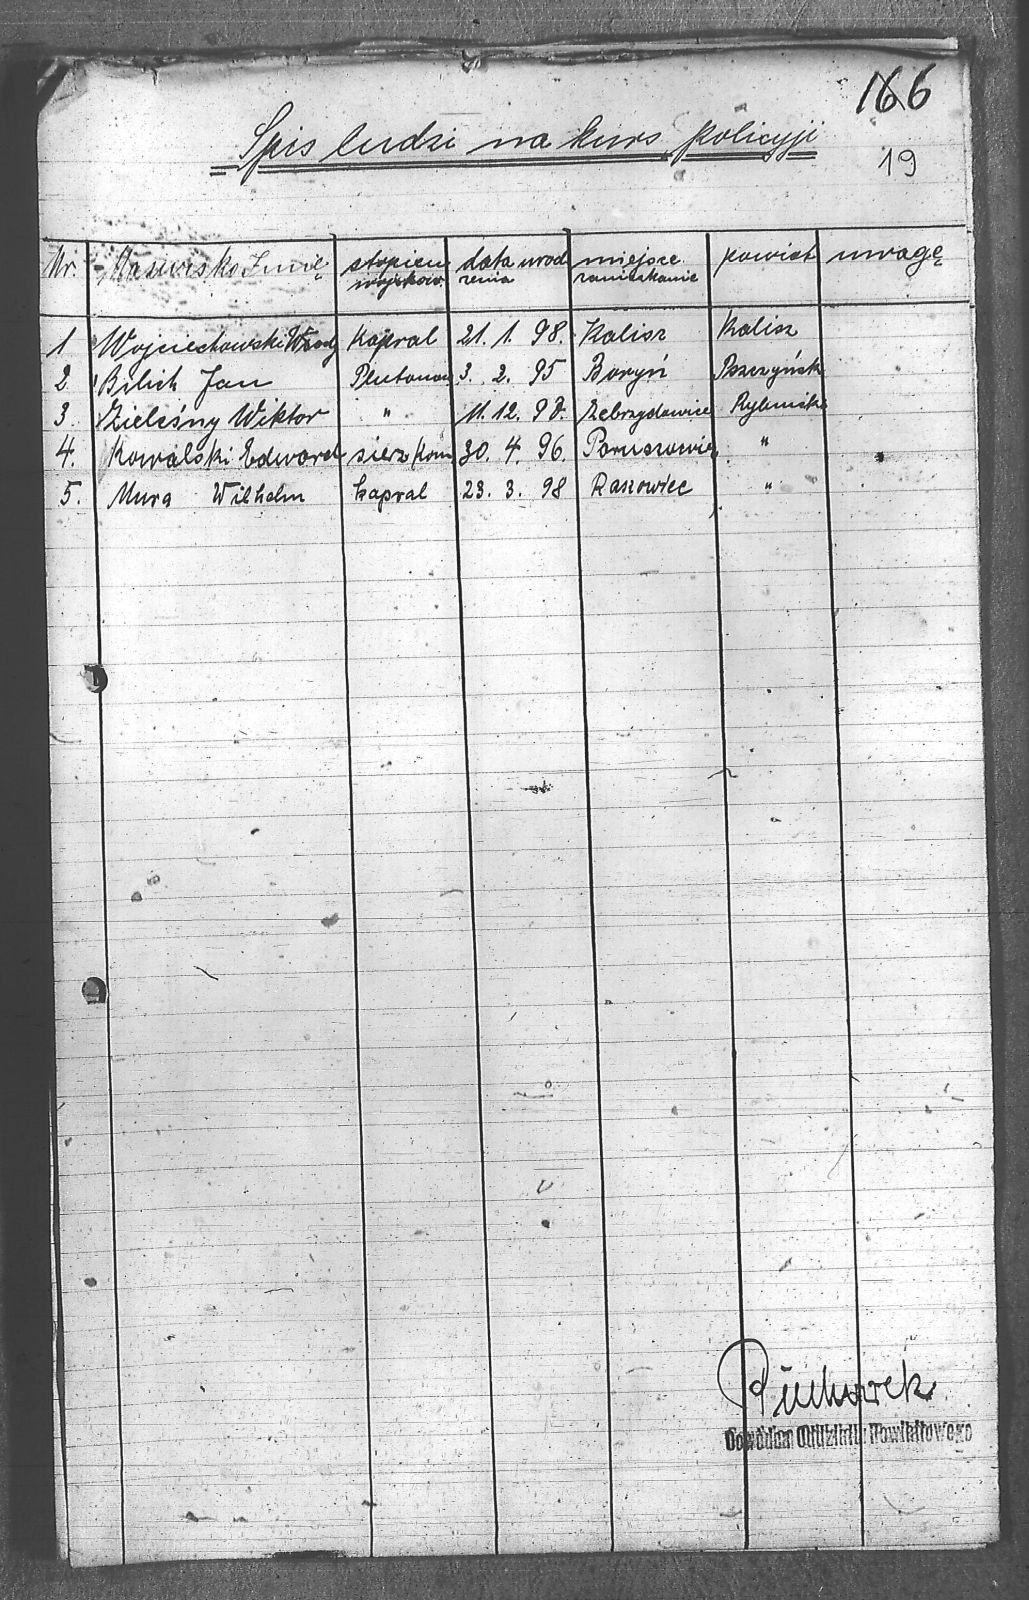 166
Spis ludzi na kurs policyji
19
Nr. Nazwisko Imię stopien wojskow. data urod zenia miejsce zamieszkanie powiat uwagę
1 Wojciechowski Kapral 21. 1. 98. Kalisz Kalisz
2. Bilich Jan Plutonow 3. 2. 95 Boryń Pszczyńsk
3. Zieleśny Wiktor " 11. 12. 98. Zebrzydowice Rybnicki
4. Kowalski Edward sierz Kom 30. 4. 96. Paruszowiec "
5. Mura Wilhelm kapral 23. 3. 98 Raszowiec "
Dowódca Oddziału Powiatowego